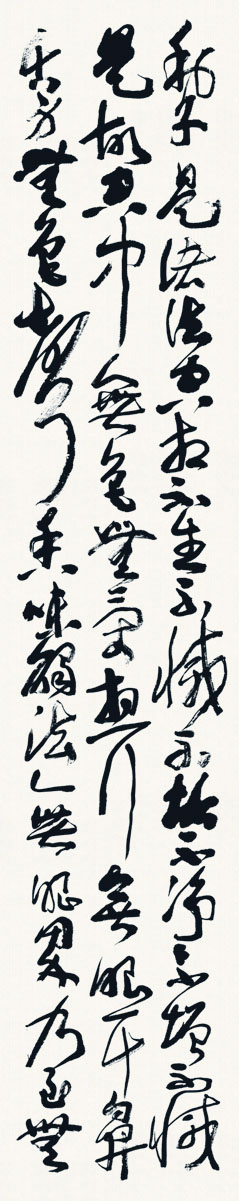 利子是诸法空相不生不滅不垢不净不增不減
是故空中無色無受想行無眼耳鼻
舌身無色聲香味觸法無眼界乃至無